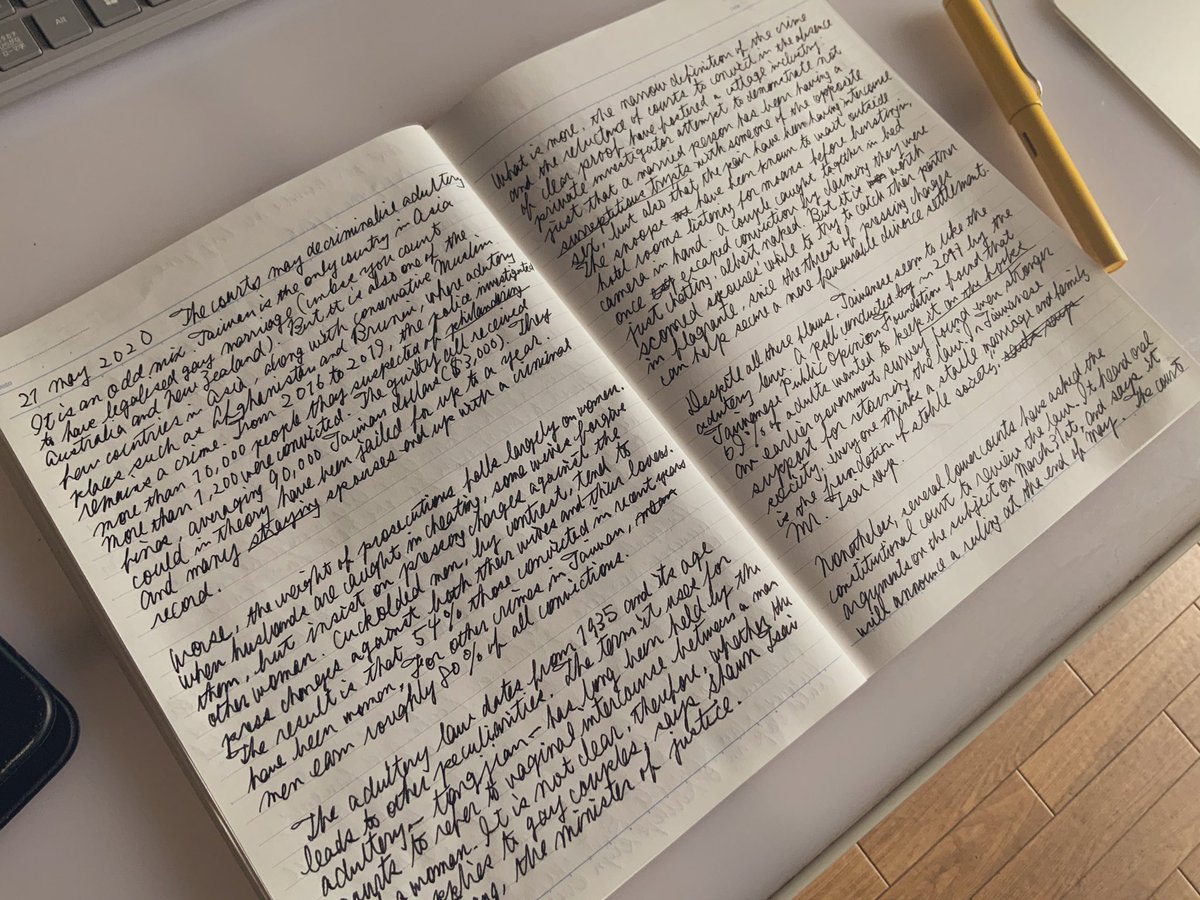 Alt
27 May 2020 The courts may decriminalise adultery
It is an odd mix. Taiwan is the only country in Asia
to have legalised gay marriage (unless you count
Australia and New Zealand). But it is also one of the
few countries in Asia, along with conservative Muslim
places such as Afghanistan and Brunei, where adultery
remains a crime. From 2016 to 2019, the police investigated
more than 10,000 people they suspected of philandering
more than 1,200 were convicted. The guilty all received
fines, averaging 90,000 Taiwan dollars ($3,000). They
could in theory have been jailed for up to a year.
And many straying spouses end up with a criminal
record.
Worse, the weight of prosecutions falls largely on women.
When husbands are caught in cheating, some wives forgive
them, but insist on pressing charges against the
other women. Cuckolded men, by contrast, tend to
press charges against both their wives and their lovers.
The result is that 54% those convicted in recent years
have been women; for other crimes in Taiwan,
men earn roughly 80% of all convictions.
The adultery law dates from 1935 and its age
leads to other peculiarities. The term it uses for
adultery— tongjian— has long been held by the
courts to refer to vaginal intercourse between a man
a woman. It is not clear, therefore, whether the
applies to gay couples, says Shawn Tsai
the minister of justice.
What is more, the narrow definition of the crime
and the reluctance of courts to convict in the absence
of clear proof have fostered a cottage industry
of private investigators attempt to demonstrate not
just that a married person has been having a
surreptitious trysts with someone of the opposite
sex, but also that the pair have been having intercourse
The snoops have been known to wait outside
hotel rooms listening for moans before bursting in,
camera in hand. A couple caught together in bed
once escaped conviction by claiming they were
just chatting, albeit naked. But it is worth
scorned spouses while to try to catch their partner
in flagrante, since the threat of pressing charges
can help secure a more favourable divorce settlement.
Despite all these flaws, Taiwanese seem to like the
adultery law. A poll conducted by in 2017 by the
Taiwanese Public Opinion Foundation found that
69% of adults wanted to keep it on the books
an earlier government survey found even stronger
support for retaining the law. In Taiwanese
society, everyone thinks a stable marriage and family
is the foundation of stable society,"
Mr. Tsai says
Nonetheless, several lower courts have asked the
constitutional court to review the law. It heard oral
arguments on the subject on March 31st, and says it
will announce a ruling at the end of May. The courts